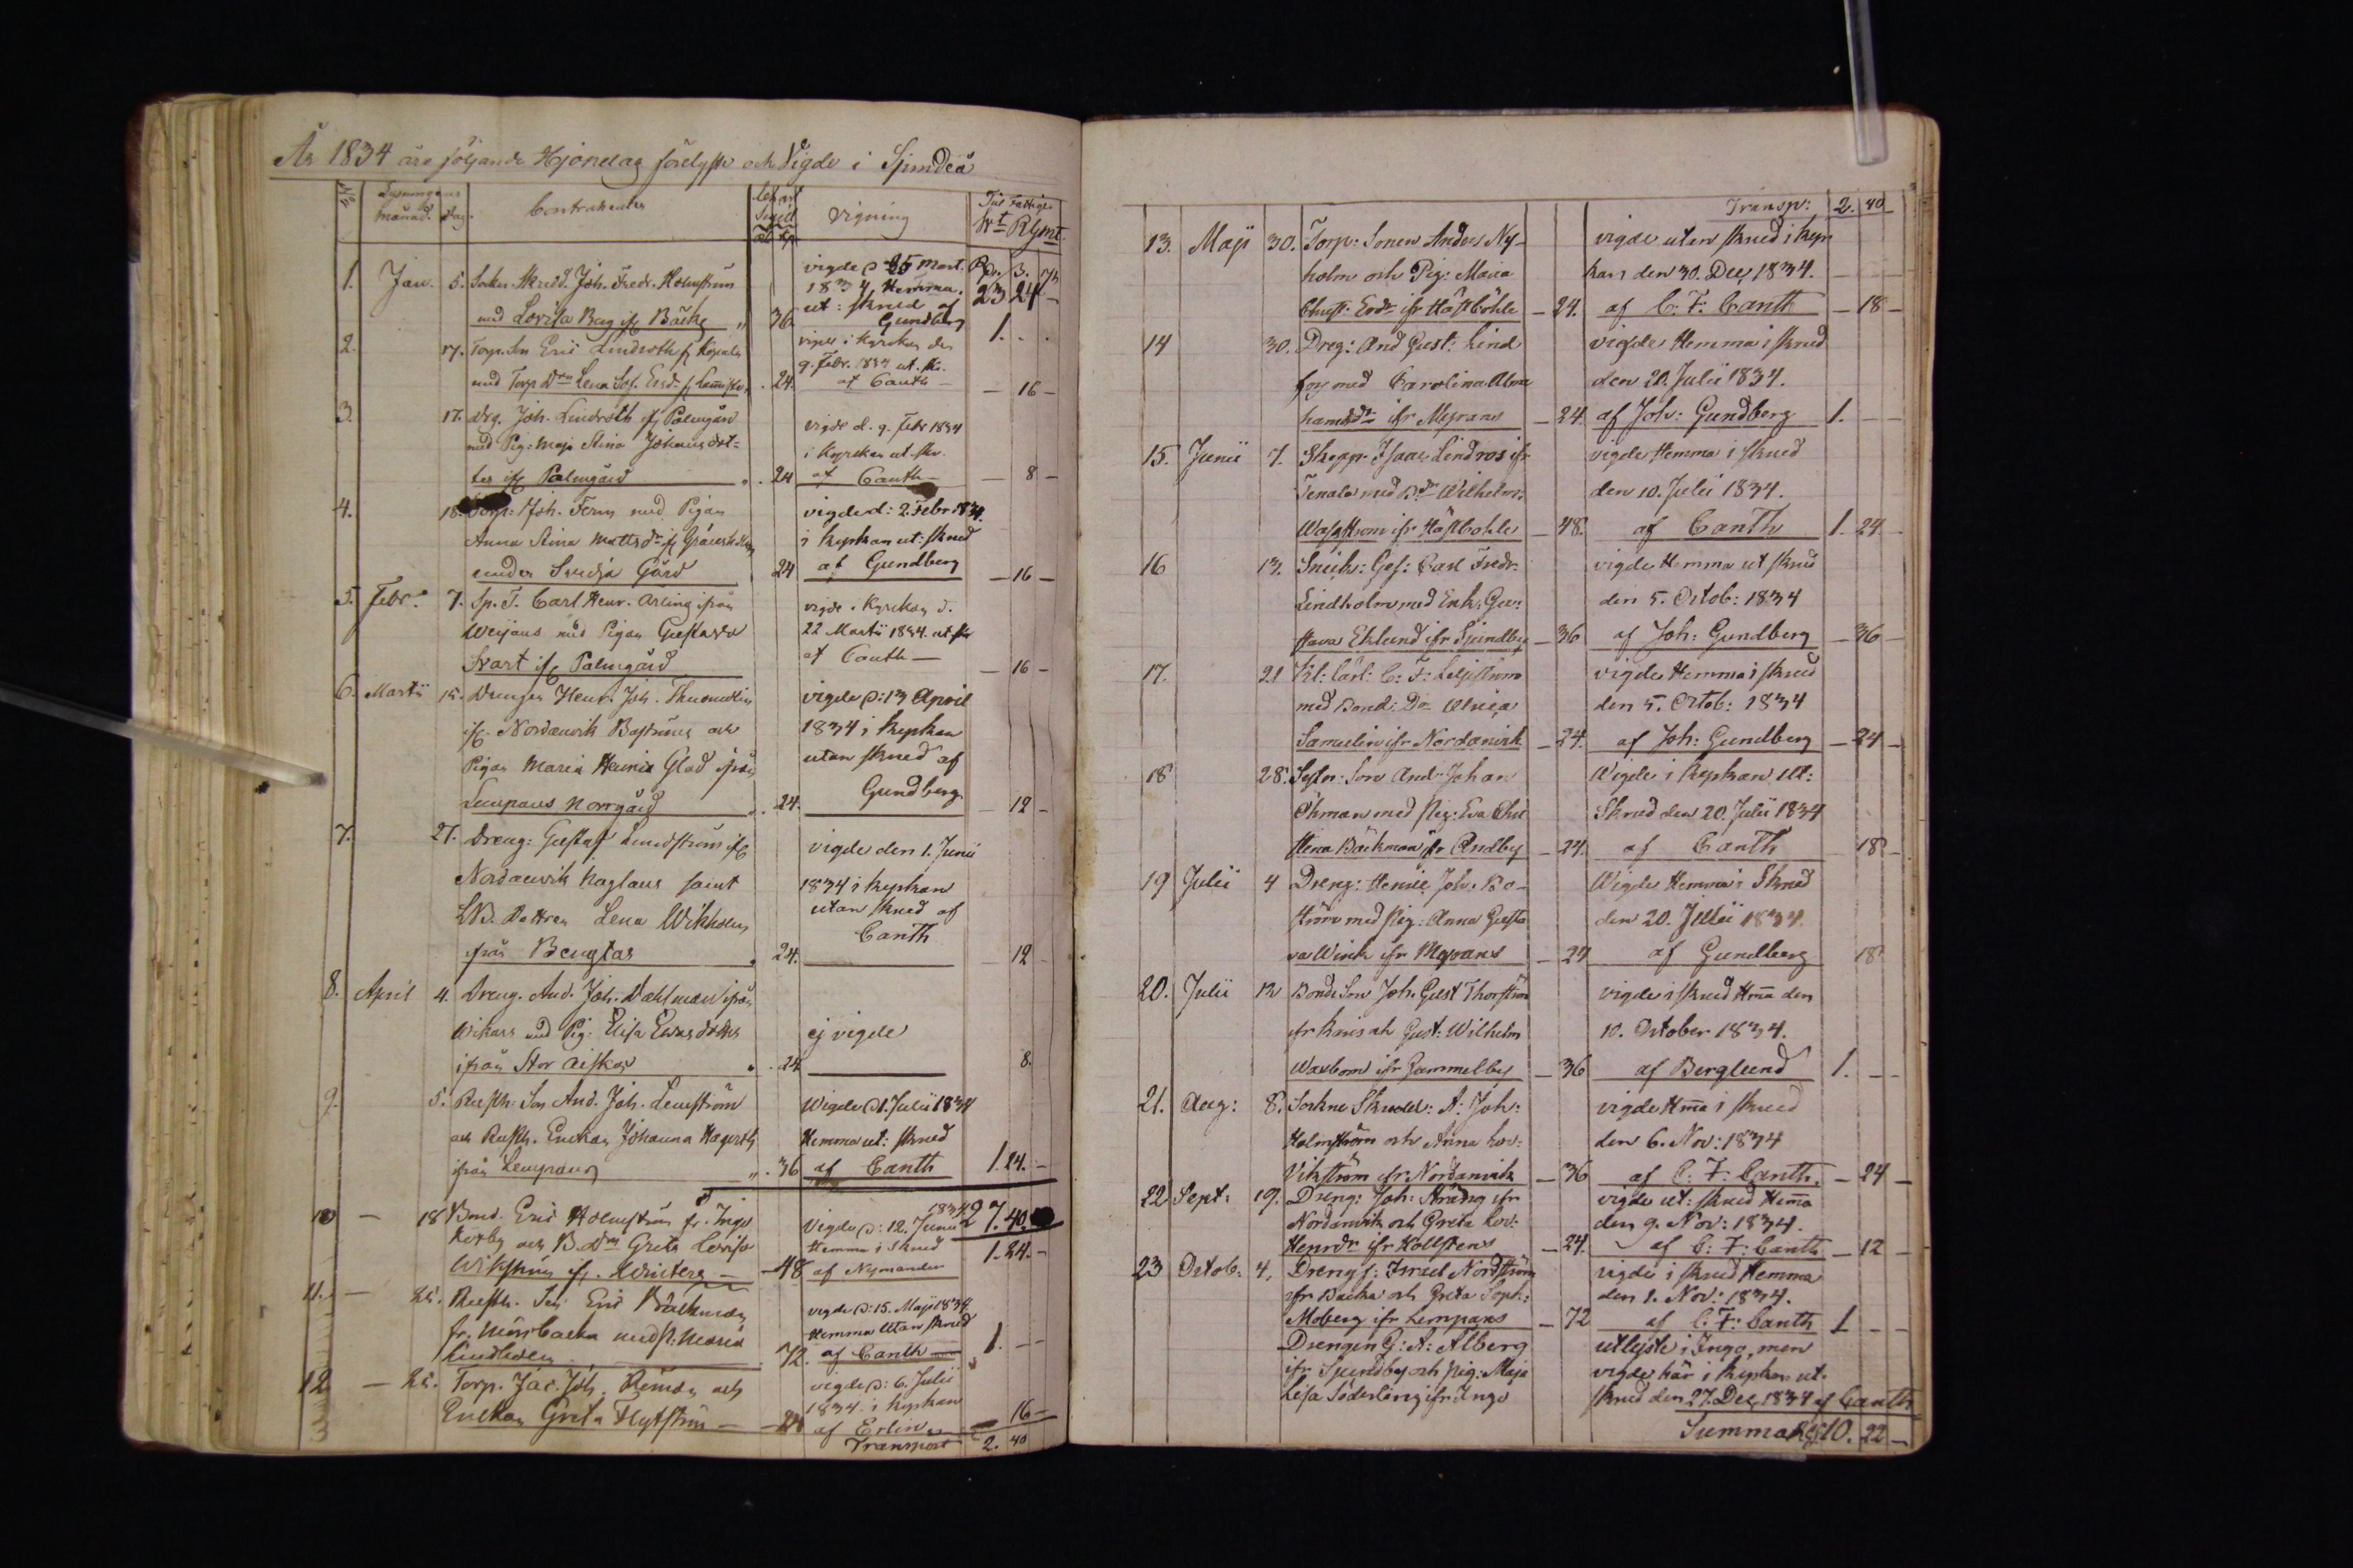 År 1834 äro följande Hjonelag förelyste och Vigde i Sjundeå
No Lysnings Månad. dag. Contrahenter Vigning Till Fattige
Rgmt.
1. Jan. 5. Sockn Skrädd. Joh. Fredr. Holmström vigde d 25 Mart. 3.
1834 Hemma. 23 24
med Lovisa Berg ifr Bäcks " 36 ut: skrud af Gundberg 1. - -
2. 17. Torp. Son Eric Lindroth fr vigde i Kyrckan den
9. Febr. 1834 ut. skr.
med Torp Dtr Lena Sof. Ersdr fr 24. af Canth — 16 —
3. 17. Drg. Joh. Lindroth ifr Palmgård vigde d. 9. Febr 1834
med Pig: Maja Stina Johansdot- i Kyrckan ut. skr.
ter ifr Palmgård . 24 af Canth — 8 —
4. 18. Torp: Joh. Fern med Pigan vigde d: 2. Febr 1834.
Anna Stina Mattsdr fr i Kyrkan ut: skrud
under Svidja Gård 24 af Gundberg — 16 —
5. Febr. 7. Sp. T. Carl Henr. Arling ifrån vigde i Kyrckan d.
Weijans med Pigan Gustava 22 Martii 1834. ut skr
Svart ifr Palmgård af Canth — 16 —
6. Martii 15. Drengen Henr. Joh. vigde d: 13 April
ifr. Nordanvik Boströms och 1834 i kyrkan
Pigan Maria Glad ifrån utan skrud af
Lempans Norrgård . 24. Gundberg 12 —
7. 27. Dreng: Gustaf Lundström ifr vigde den 1. Junii
Nordanvik Naglans samt 1834 i kyrkan
LB. Dottren Lena Wikholm utan skrud af
från Bengtas . 24. Canth — 12 —
8. April 4. Dreng. And. Joh. Dahlman ifrån
Wikars med Pig. Elisa Ersdotter ej vigde
ifrån Stor . 24 8.
9. 5. Rusth. Son And. Joh. Lemström Wigde d 1. Julii 1834
och Rusth. Enckan Johanna Hemma ut: skrud
ifrån Lempans ". 36 af Canth 1. 24. —
10 — 18 Bond. Eric Holmström fr. Ingo Vigde d: 12. Junii 1834 7. 40.
och B. Dtr Greta Lovisa Hemma i skrud 1. 24. —
Wikström ifr. — 48 af Nymander
11. — 25. Rusth. Son Eric Bäckman vigde d: 15. Maji 1834
fr. Mörsbacka med p. Maria Hemma utan skrud
Lindholm 72. af Canth 1. — —
12 — 25. Torp. Jac. Joh. och vigde d: 6. Julii
1834. i kyrkan
Enckan Greta Flytström — 24 af Erlin 16 —
Transport 2. 40
Transp: 2. 40
13. Maji 30. Torp: Sonen Anders Ny- vigde utan skrud i kyr
holm och Pig: Maria kan den 30. Dec. 1834.
Christ. Ersdr ifr Hästböhle — 24. af C: F: Canth — 18 —
14 30. Dreg: And Gust: Lind vigde Hemma i skrud
fors med Carolina Abra den 20. Julii 1834.
hamsdr ifr Myrans — 24 af Joh: Gundberg 1. — —
15. Junii 7. Skepp: Isaac Lindros ifr vigde Hemma i skrud
Tenala med B.dr Wilhelm: den 10. Julii 1834.
ifr Hästböhle — 48. af Canth 1. 24.
16 13. Snick: Ges: Carl Fredr: vigde Hemma ut skrud
Lindholm med Enk: Gu: den 5. Octob: 1834
stava Eklund ifr Sjundby — 36 af Joh: Gundberg — 36 —
17. 21 Kl: Carl: C: F: vigde Hemma i skrud
med Bond: Dr Ulrica den 5. Octob: 1834
Samelin ifr Nordanvik — 24. af Joh: Gundberg — 24 —
18 28. Son And: Johan Wigde i Kyrkan ut:
Öhman med Pig: Eva Chri Skrud den 20. Julii 1834
stina Bäckman ifr Andby — 24. af Canth 18 —
19 Julii 4 Dreng: Henric Joh: Bo- Wigde Hemma i Skrud
ström med Pig: Anna Gusta den 20. Julii 1834.
va Winck ifr Myrans — 24 af Gundberg 18
20. Julii 12 Bonde Son Joh. Gust Thorström vigde i skrud Hma den
ifr Knis och Gust: Wilhelm 10. October 1834.
Waxbom ifr Gammelby — 36 af Berglund 1. — —
21. Aug: 8. Sockne Skredd: A: Joh: vigde Hma i skrud
Holmström och Anna Lov: den 6. Nov: 1834
Vikström ifr Nordanvik — 36 af C: F: Canth. — 24 —
22 Sept: 19. Dreng: Joh: Sträng ifr vigde ut: skrud Hemma
Nordanvik och Greta Lov: den 9. Nov: 1834.
Henrdr ifr Hollstens — 24. af C: F: Canth — 12 —
23 Octob: 4. Drengs: Israel Nordström vigde i skrud Hemma
ifr Backa och Greta Soph: den 1. Nov: 1834.
Moberg ifr Lempans — 72 af C: F: Canth 1 — —
Drengen G: A: Alberg utlyste i Ingo, men
ifr Sjundby och Pig: Maja vigde här i kyrkan ut.
Lisa Söderling ifr Ingo skrud den 27. Dec. 1834 af Canth
Summa Rg 10. 22 —